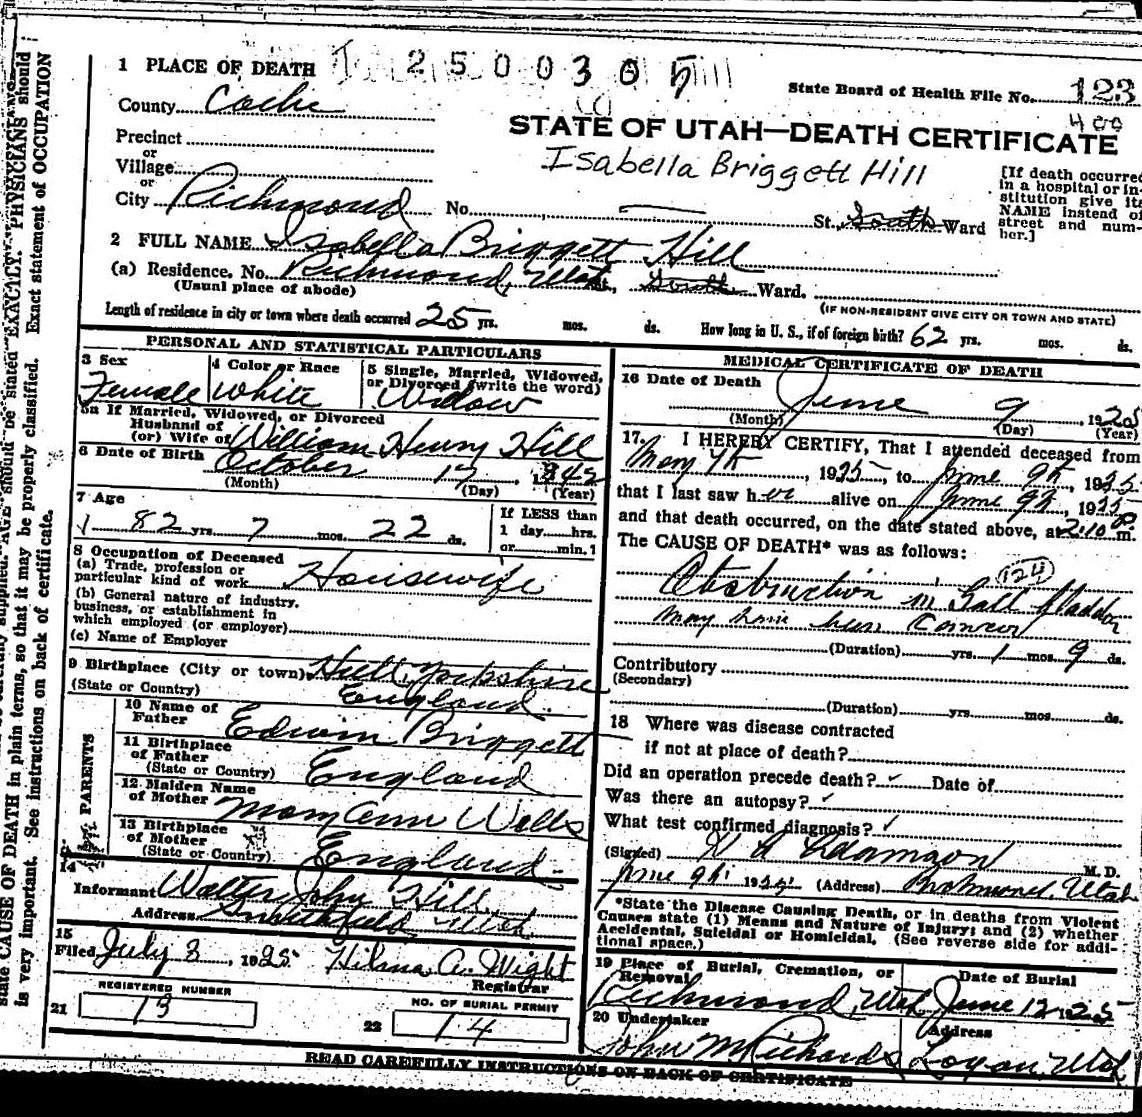 1 PLACE OF DEATH 2500305
State Board of Health File No. 123
400
County Cache
STATE OF UTAH—DEATH CERTIFICATE
Isabella Briggett Hill
Precinct
or
Village
or
City Richmond No. St., South Ward
[If death occurred
in a hospital or in-
stitution give its
NAME instead of
street and num-
ber.]
2 FULL NAME Isabella Briggett Hill
(a) Residence. No. Richmond, Utah, South Ward.
(Usual place of abode)
(IF NON-RESIDENT GIVE CITY OR TOWN AND STATE)
Length of residence in city or town where death occurred 25 yrs. mos. ds. How long in U. S., if of foreign birth? 62 yrs. mos. ds.
PERSONAL AND STATISTICAL PARTICULARS
3 Sex
Female
4 Color or Race
White
5 Single, Married, Widowed,
or Divorced (write the word)
Widow
5a If Married, Widowed, or Divorced
Husband of
(or) Wife of William Henry Hill
6 Date of Birth October 17, 1842
(Month) (Day) (Year)
7 Age
82 yrs. 7 mos. 22 ds.
If LESS than
1 day hrs.
or min.
8 Occupation of Deceased
(a) Trade, profession or
particular kind of work Housewife
(b) General nature of industry,
business, or establishment in
which employed (or employer)
(c) Name of Employer
9 Birthplace (City or town) Hull, Yorkshire
(State or Country) England.
PARENTS
10 Name of
Father Edwin Briggett
11 Birthplace
of Father
(State or Country) England
12 Maiden Name
of Mother Mary Ann Wells
13 Birthplace
of Mother
(State or Country) England
14
Informant Walter John Hill
Address Smithfield, Utah.
15
Filed July 3, 1925 Hilma A. Wight
Registrar
21 REGISTERED NUMBER
13
22 NO. OF BURIAL PERMIT
14
MEDICAL CERTIFICATE OF DEATH
16 Date of Death
June 9, 1925
(Month) (Day) (Year)
17. I HEREBY CERTIFY, That I attended deceased from
May 7th, 1925, to June 9th, 1925
that I last saw her alive on June 9th, 1925
and that death occurred, on the date stated above, at 2:10 P m.
The CAUSE OF DEATH* was as follows:
124
Obstruction in Gall Bladder
May have been Cancer
(Duration) yrs. 1 mos. 9 ds.
Contributory
(Secondary)
(Duration) yrs. mos. ds.
18 Where was disease contracted
if not at place of death?
Did an operation precede death? ✓ Date of
Was there an autopsy? ✓
What test confirmed diagnosis? ✓
(Signed) Adamson M. D.
June 9th 1925 (Address) Richmond, Utah
*State the Disease Causing Death, or in deaths from Violent
Causes state (1) Means and Nature of Injury; and (2) whether
Accidental, Suicidal or Homicidal. (See reverse side for addi-
tional space.)
19 Place of Burial, Cremation, or
Removal
Richmond, Utah
Date of Burial
June 12 1925
20 Undertaker
John M Richards
Address
Logan, Utah
READ CAREFULLY INSTRUCTIONS ON BACK OF CERTIFICATE
state CAUSE OF DEATH in plain terms, so that it may be properly classified. Exact statement of OCCUPATION
is very important. See instructions on back of certificate.